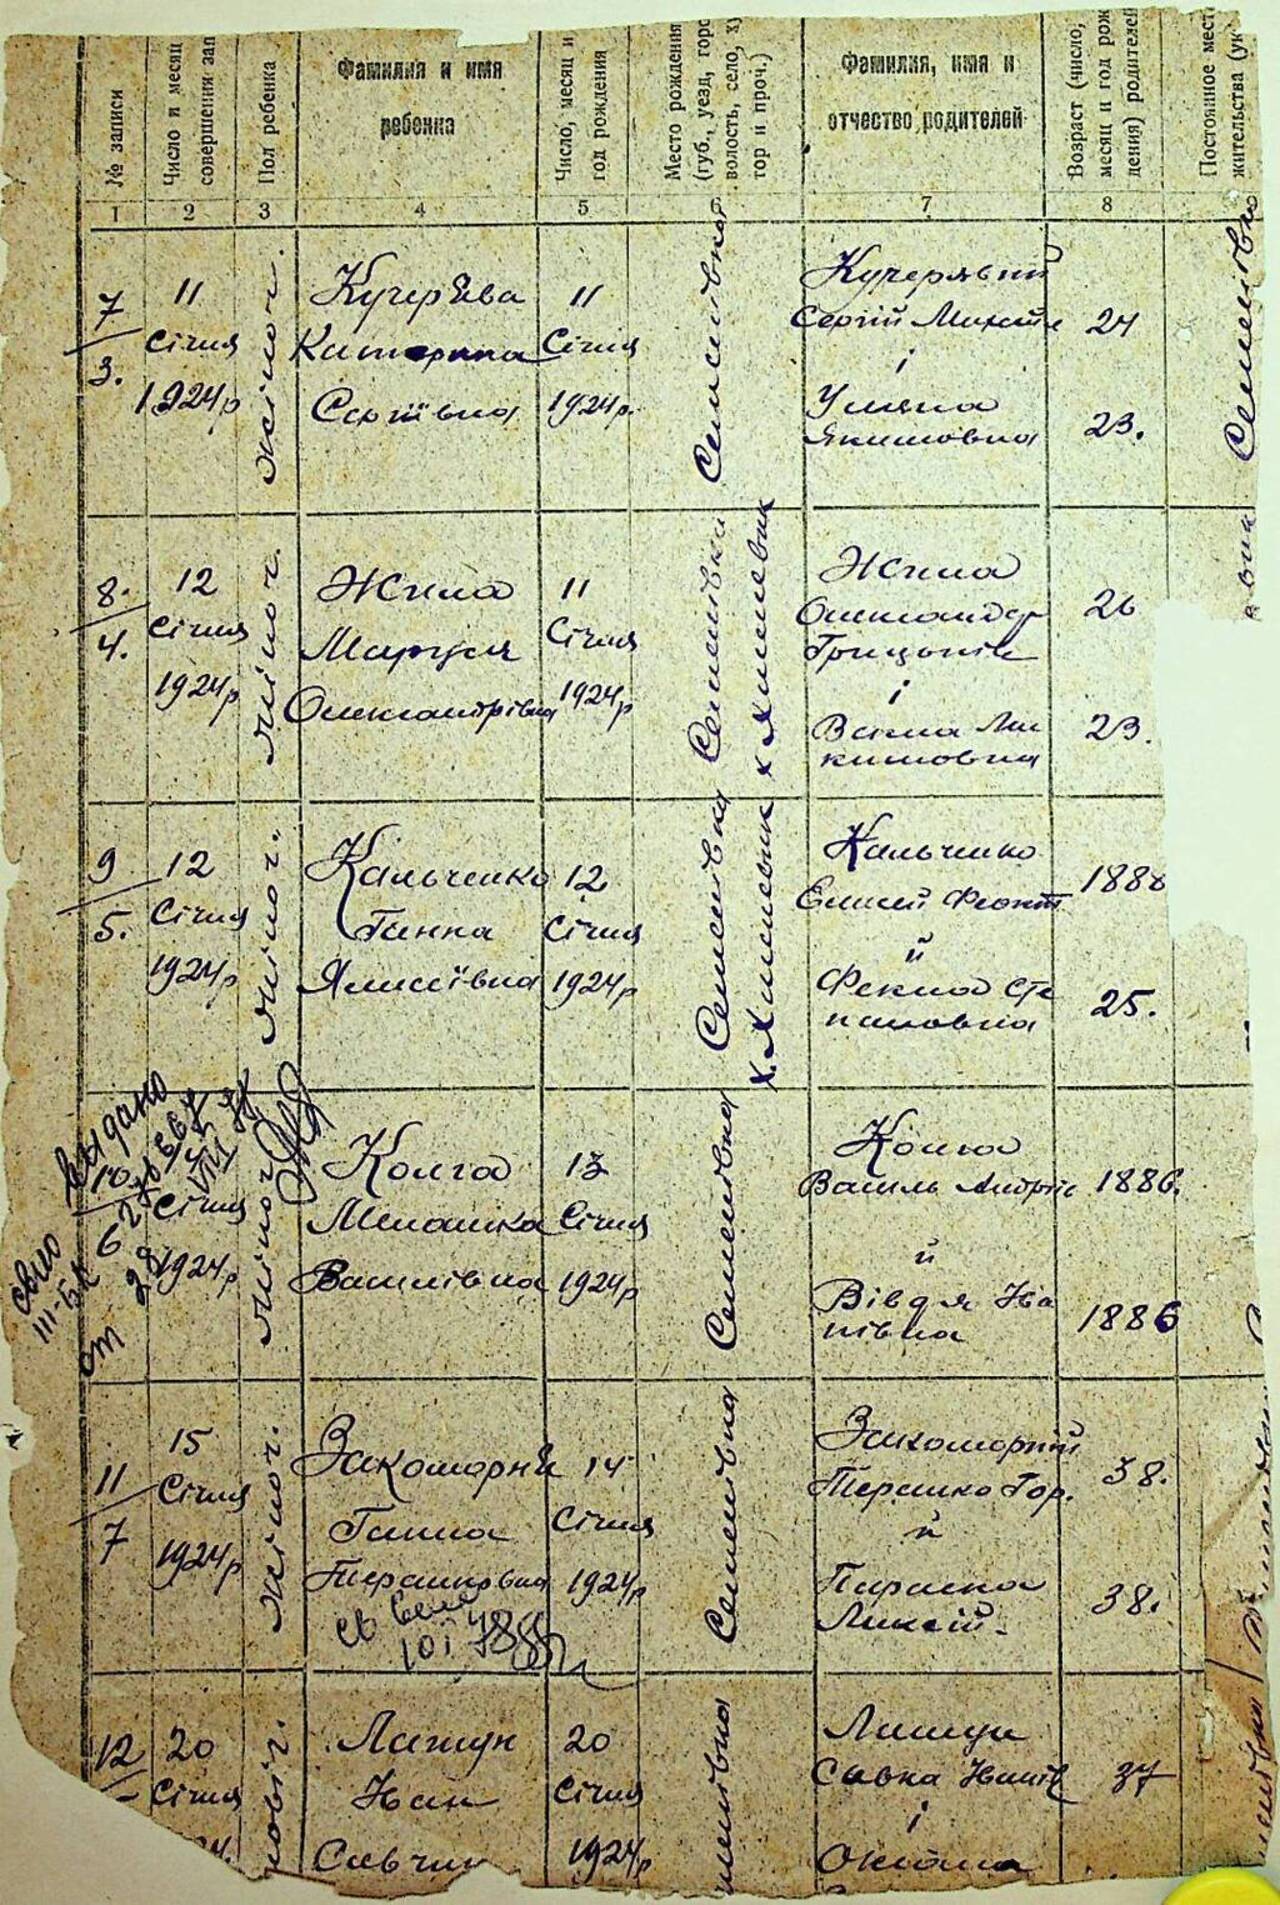 № записи
Число и месяц
совершения зап
Пол ребенка
Фамилия и имя
ребенка
Число, месяц и
год рождения
Место рождения
(губ., уезд, горо
волость, село, ху
тор и проч.)
Фамилия, имя и
отчество родителей
Возраст (число,
месяц и год рож
дения) родителей
Постоянное мест
жительства (ук
1 2 3 4 5 6 7 8
7
3.
11
Січня
1924р
жіноч.
Кучерява
Катерина
Сергіївна
11
Січня
1924р.
Семенівка
Кучерявий
Сергій Микит
і
Уляна
Якимовна
24
23.
Семенівка
8.
4.
12
Січня
1924р
жіноч.
Жила
Маруся
Олександрівна
11
Січня
1924р
Семенівка
Жила
Олександр
і
кимовна
26
23.
вка
9
5.
12
Січня
1924р
жіноч.
Кальченко
Ганна
Ялисеївна
12
Січня
1924р
Семенівка
Кальченко
Елисей Феокт
й
Фекла Сте
пановна
1888
25.
видано
10
Січня
1924р
жіноч.
от 28
Колга
Мелашка
Василівна
13
Січня
1924р
Семенівка
Колга
Василь Андрів
й
Вівдя Іва
нівна
1886.
1886
11
7
15
Січня
1924р
жіноч.
Закоморній
Ганна
Терешковна
14
Січня
1924р
Семенівка
Закоморній
Терешко Гор.
й
Параска
Ликсій.
38.
38.
12
20
Січня
24.
ловіч.
Лащун
Іван
Савчин
20
Січня
1924р
менівка
Лащун
Савка Іванів
і
Оксана
37
менівка